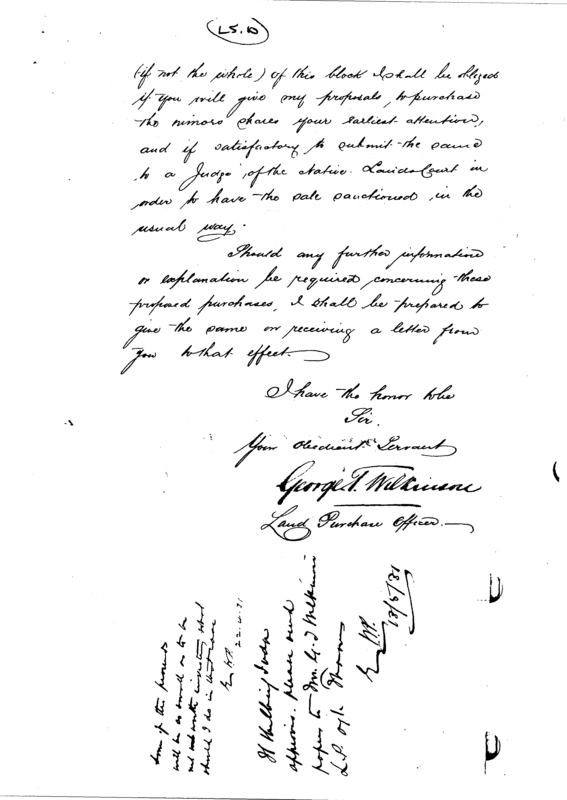 L S. D
(if not the whole) of this block I shall be obliged
if you will give my proposals, to purchase
the minors shares your earliest attention,
and if satisfactory to submit the same
to a Judge of the Native Lands Court in
order to have the sale sanctioned in the
usual way.
Should any further information
or explanation be required concerning these
proposed purchases, I shall be prepared to
give the same on receiving a letter from
you to that effect.
I have the honor to be
Sir,
Your obedient Servant
George T. Wilkinson
Land Purchase Officer.
will be so small as to be
not worth investing what
should I do in that case
22.
please send
papers to Mr. G. T. Wilkinson